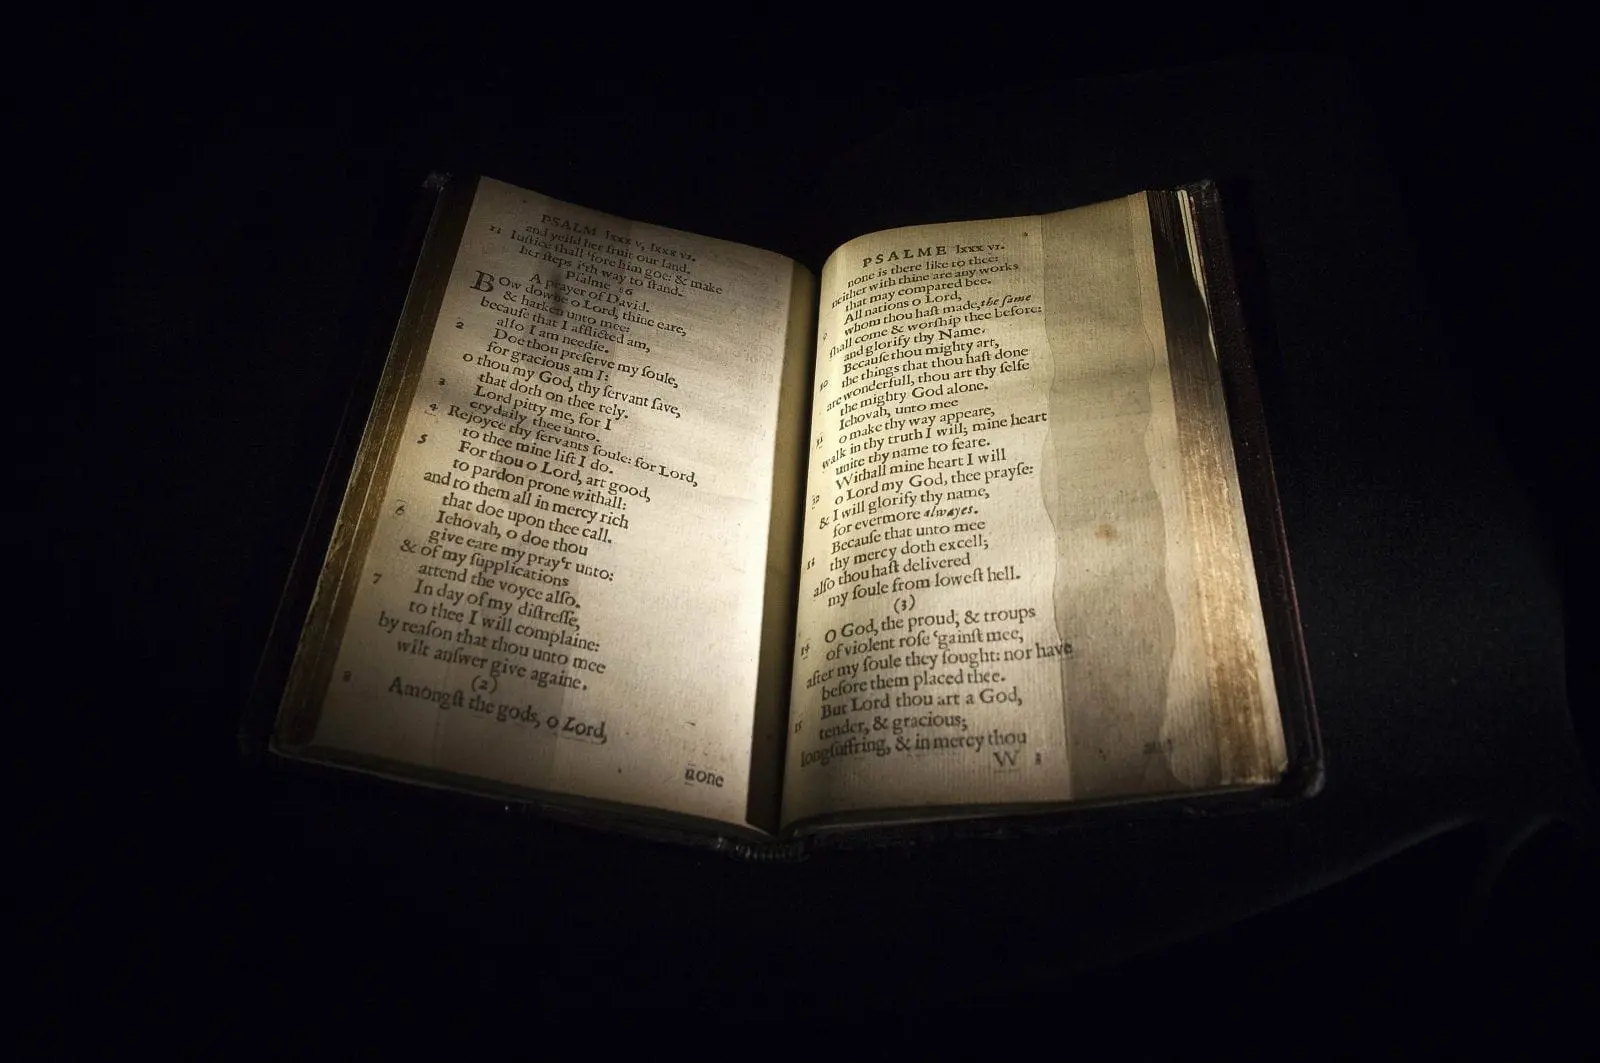 PSALM lxxx v, lxxx vi.
and yeild her fruit our land.
11 Iuſtice ſhall 'fore him goe: & make
her ſteps i'th way to ſtand.
Pſalme 86
A prayer of David.
BOw downe o Lord, thine eare,
& harken unto mee:
becauſe that I afflicted am,
alſo I am needie.
2 Doe thou preſerve my ſoule,
for gracious am I:
o thou my God, thy ſervant ſave,
that doth on thee rely.
3 Lord pitty me, for I
cry daily thee unto.
4 Rejoyce thy ſervants ſoule: for Lord,
to thee mine lift I do.
5 For thou o Lord, art good,
to pardon prone withall:
and to them all in mercy rich
that doe upon thee call.
6 Iehovah, o doe thou
give eare my pray'r unto:
& of my ſupplications
attend the voyce alſo.
7 In day of my diſtreſſe,
to thee I will complaine:
by reaſon that thou unto mee
wilt anſwer give againe.
(2)
8 Amongſt the gods, o Lord,
none
PSALME lxxx vi.
none is there like to thee:
neither with thine are any works
that may compared bee.
9 All nations o Lord,
whom thou haſt made, the ſame
ſhall come & worſhip thee before:
and glorify thy Name.
10 Becauſe thou mighty art,
the things that thou haſt done
are wonderfull, thou art thy ſelfe
the mighty God alone.
11 Iehovah, unto mee
o make thy way appeare,
walk in thy truth I will; mine heart
unite thy name to feare.
12 Withall mine heart I will
o Lord my God, thee prayſe:
& I will glorify thy name,
for evermore alwayes.
Becauſe that unto mee
thy mercy doth excell;
alſo thou haſt delivered
my ſoule from loweſt hell.
(3)
14 O God, the proud, & troups
of violent roſe 'gainſt mee,
after my ſoule they ſought: nor have
before them placed thee.
15 But Lord thou art a God,
tender, & gracious;
longſuffring, & in mercy thou
W